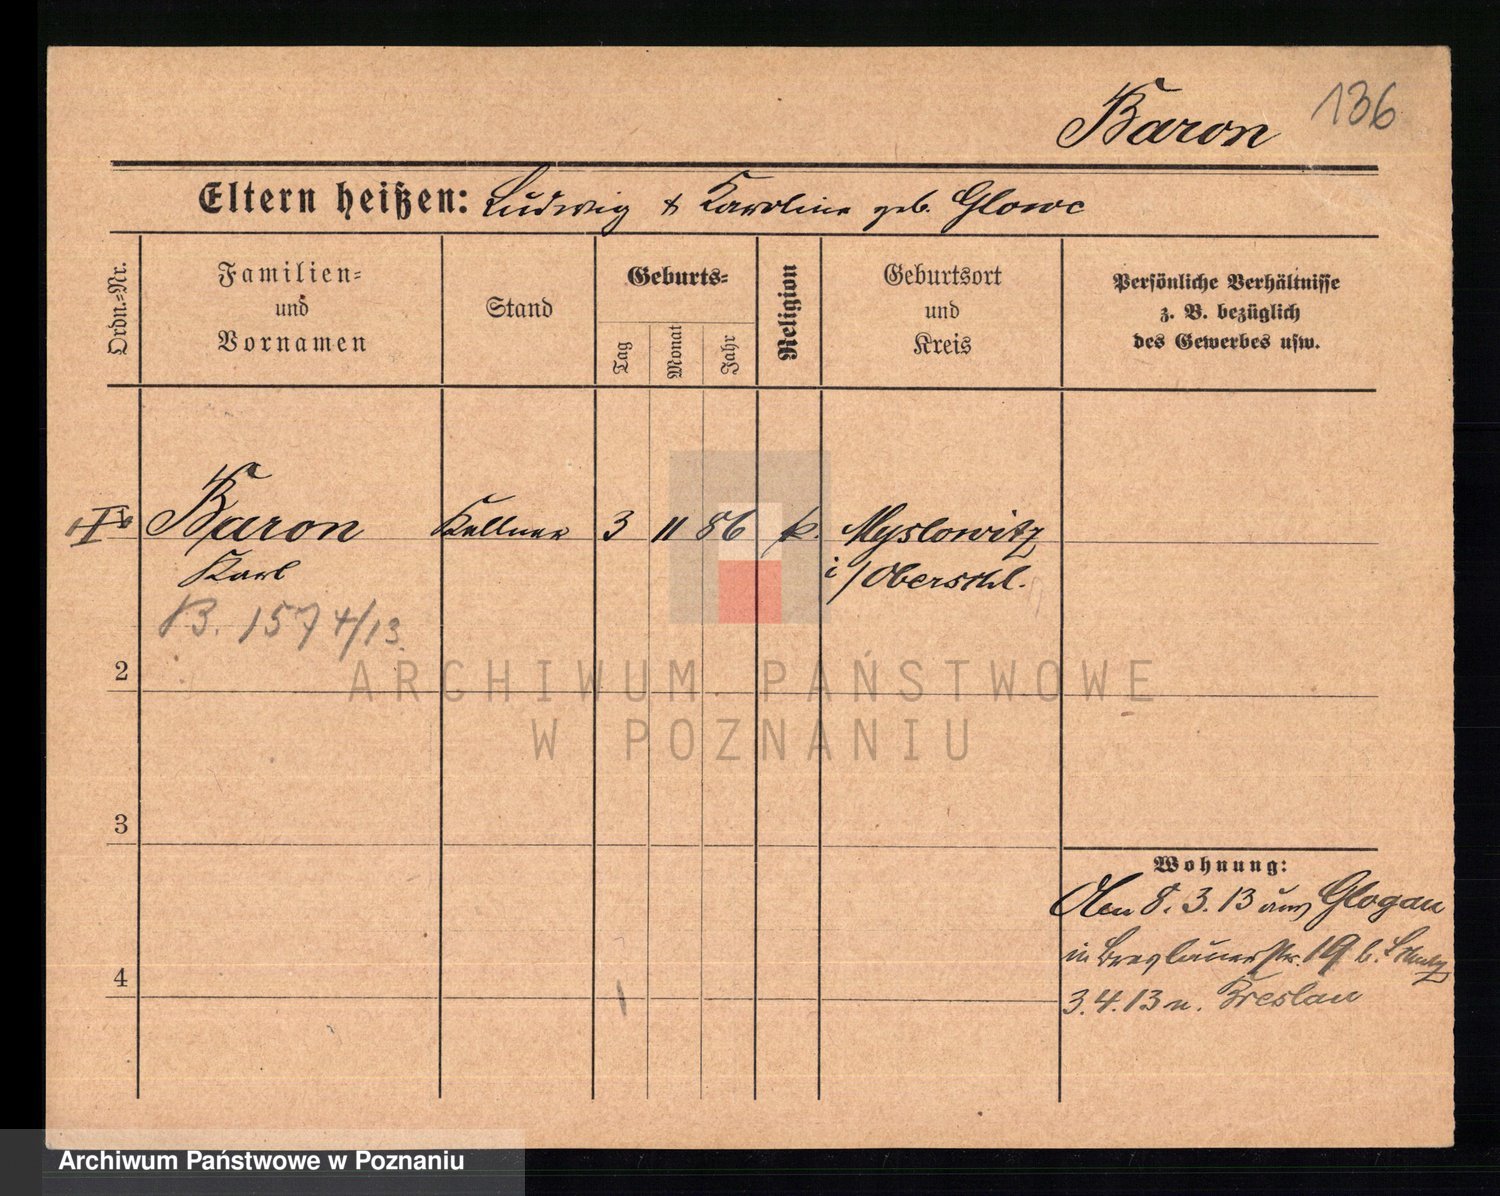 Baron 136
Eltern heißen: Ludwig & Karoline geb. Glowc
Ordn.=Nr.
Familien=
und
Vornamen
Stand
Geburts=
Tag
Monat
Jahr
Religion
Geburtsort
und
Kreis
Persönliche Verhältnisse
z. B. bezüglich
des Gewerbes usw.
Baron Kellner 3 11 86 k. Myslowitz
Karl i/Oberschl.
B. 1574/13.
2
3
4
Wohnung:
8. 3. 13 aus Glogau
in Breslauerstr. 19 b.
3. 4. 13 n. Breslau
ARCHIWUM PAŃSTWOWE
W POZNANIU
Archiwum Państwowe w Poznaniu